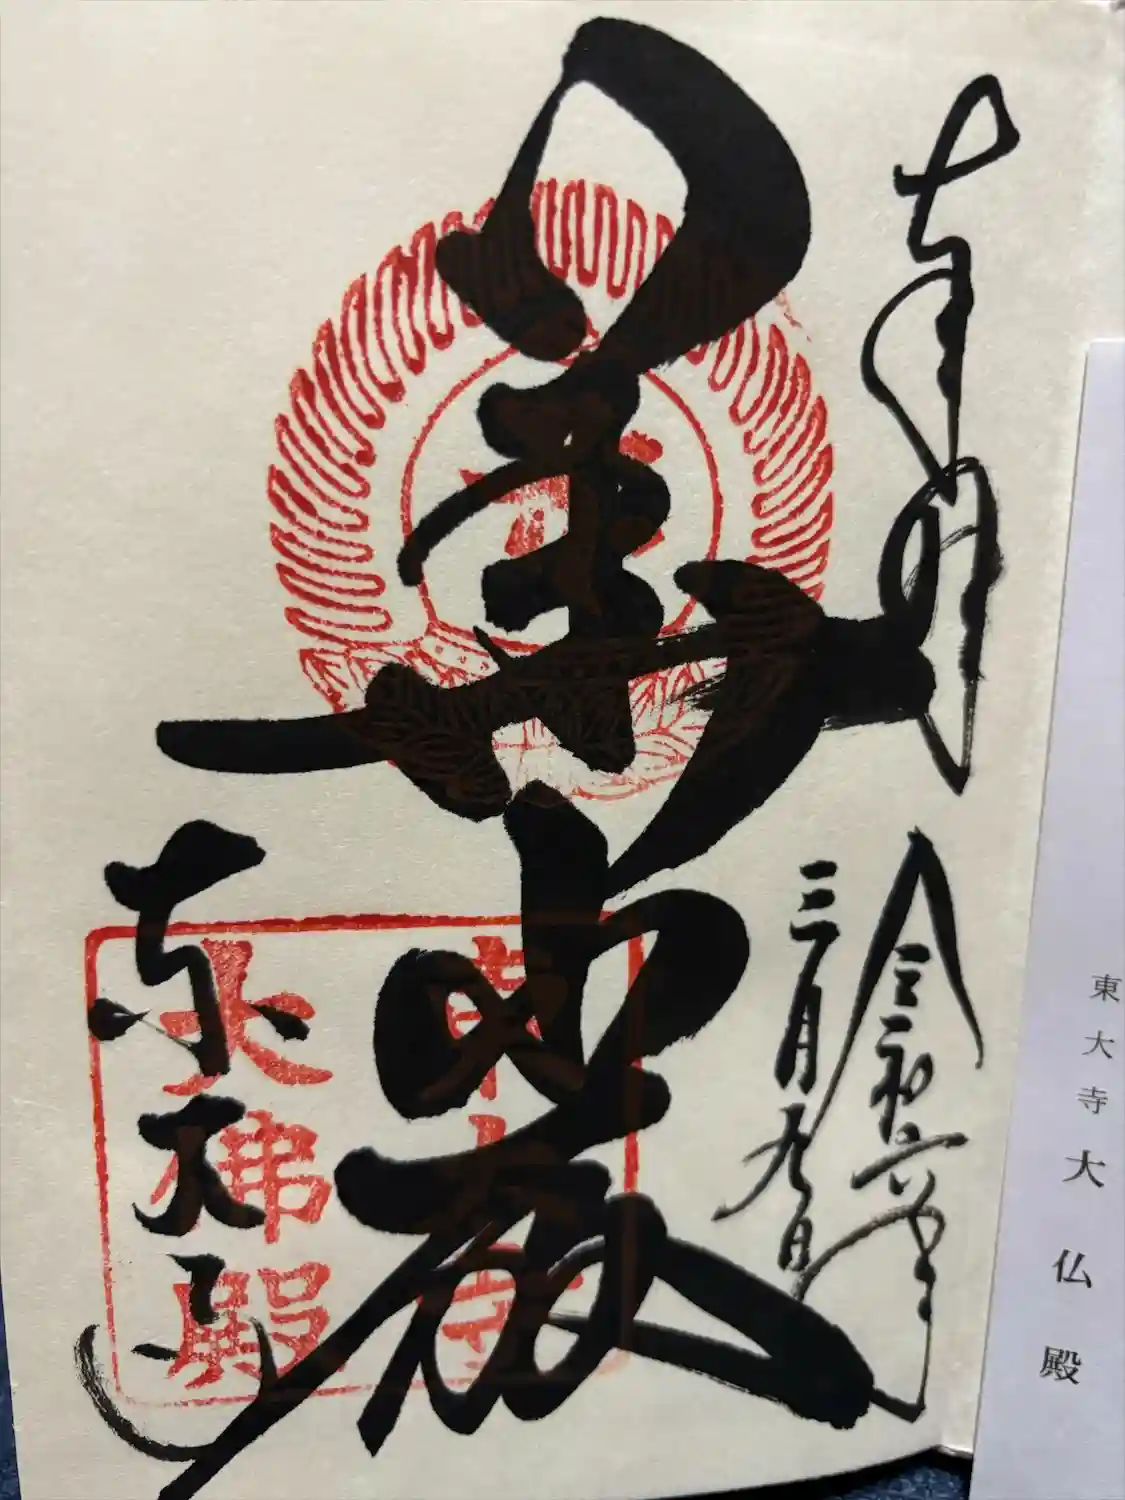 東大寺大仏殿
奉拝
令和六年
三月九日
華厳
東大寺
東大寺
大佛殿